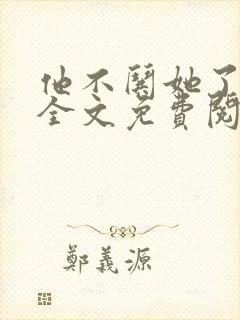 他不鬧她了
全文免費閱
鄭義源